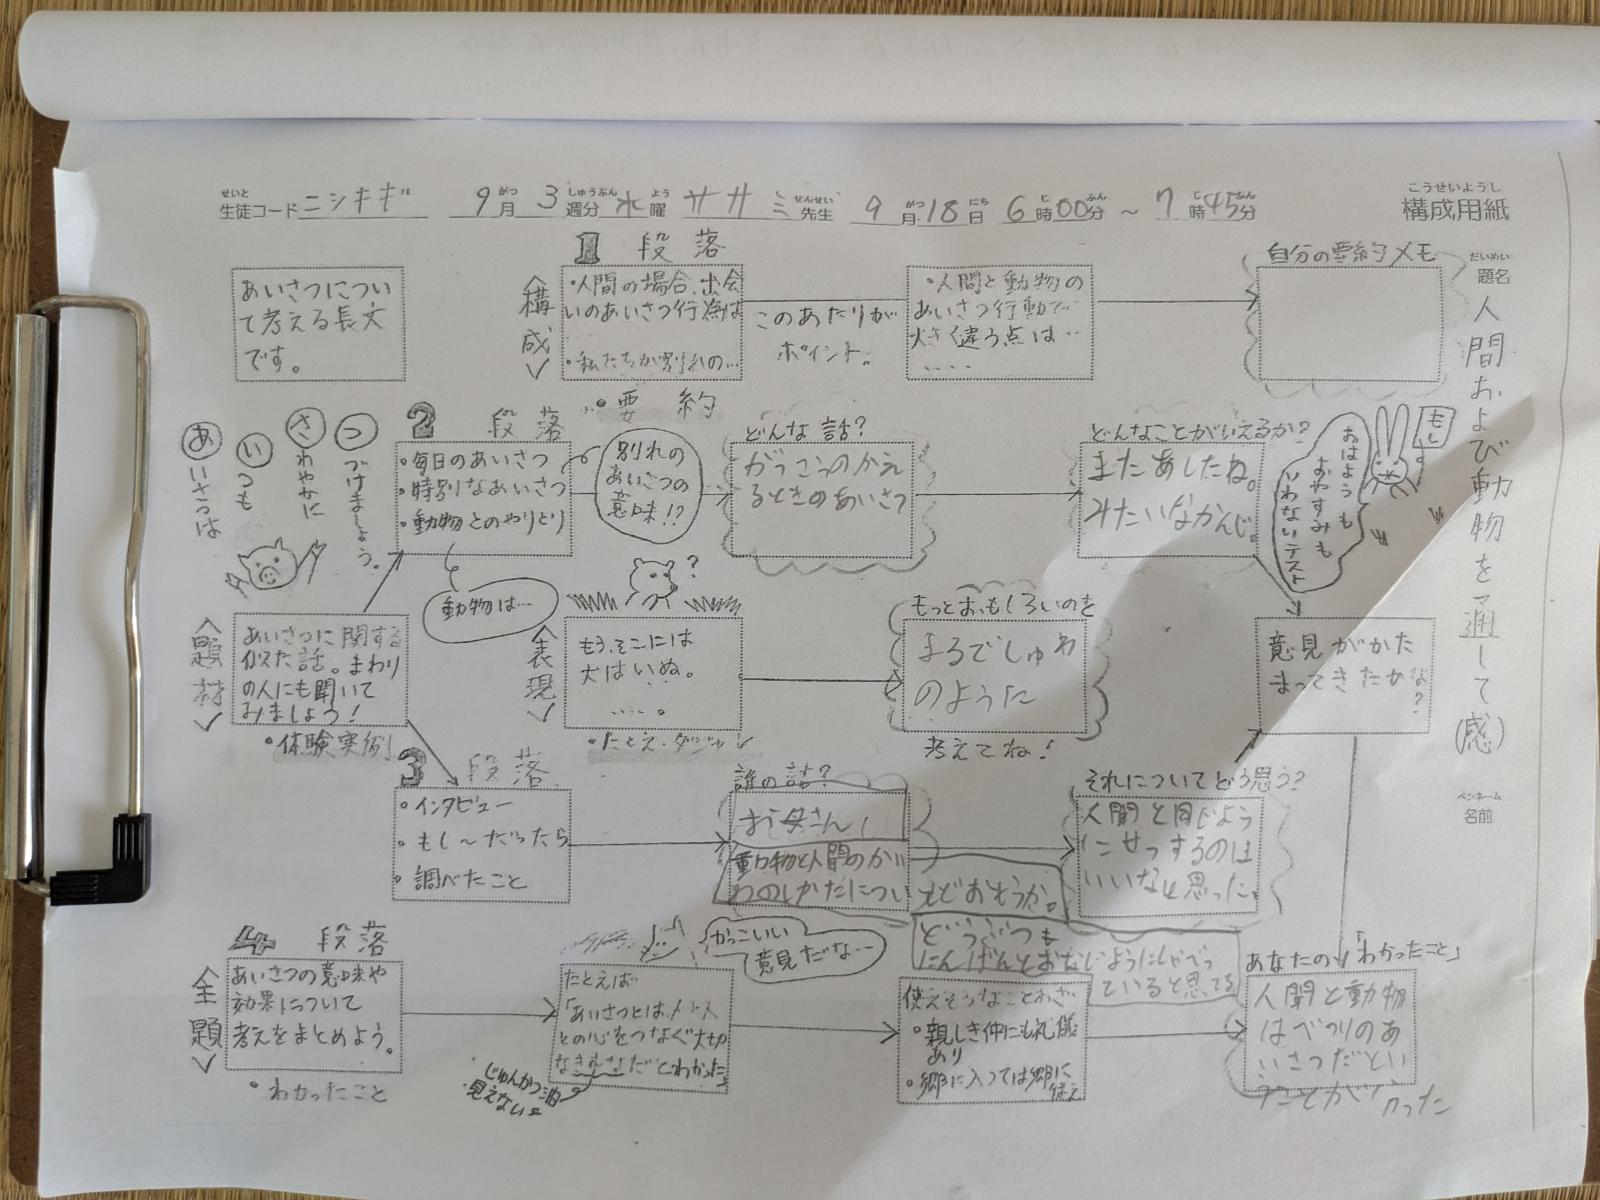 せいと
生徒コード ニシキギ 9月 3週分 水曜 ササミ先生 9月18日 6時00分 ～ 7時45分
こうせいようし
構成用紙
だいめい
題名
人間および動物を通して(感)
ペンネーム
名前
あいさつについ
て考える長文
です。
1 段落
〈構成〉
・人間の場合、出会
いのあいさつ行為は
・私たちが別れの…
・要約
このあたりが
ポイント。
・人間と動物の
あいさつ行動で
大きく違う点は…
‥‥
自分の要約メモ
あいさつは
いつも
さわやかに
つづけましょう。
2 段落
・毎日のあいさつ
・特別なあいさつ
・動物とのやりとり
別れの
あいさつの
意味!?
どんな話?
がっこうのかえ
るときのあいさつ
どんなことがいえるか?
またあしたね。
みたいなかんじ。
もし
おはようも
おやすみも
いわないテスト
動物は…
〈題材〉
あいさつに関する
似た話。まわり
の人にも聞いて
みましょう!
・体験実例!
〈表現〉
?
もう、そこには
犬はいぬ。
‥‥。
・たとえ・ダジャレ
もっとおもしろいのを
まるでしゅわ
のように
考えてね!
意見がかた
まってきたかな
?
3 段落
・インタビュー
・もし～だったら
・調べたこと
誰の話?
お父さん
動物と人間のかい
わのしかたについ
てどおもうか。
どうぶつも
にんげんとおなじようにしゃべっ
ていると思ってる
それについてどう思う?
人間と同じよう
にせっするのは
いいなと思った。
4 段落
〈全題〉
あいさつの意味や
効果について
考えをまとめよう。
・わかったこと
かっこいい
意見だな…
たとえば
「あいさつとは、人と人
との心をつなぐ大切
だとわかった」
じゅんかつ油
見えない
使えそうなことわざ
・親しき仲にも礼儀
あり
・郷に入っては郷に
従え
あなたの「わかったこと」
人間と動物
はべつりのあ
いさつだとい
うことがわかった